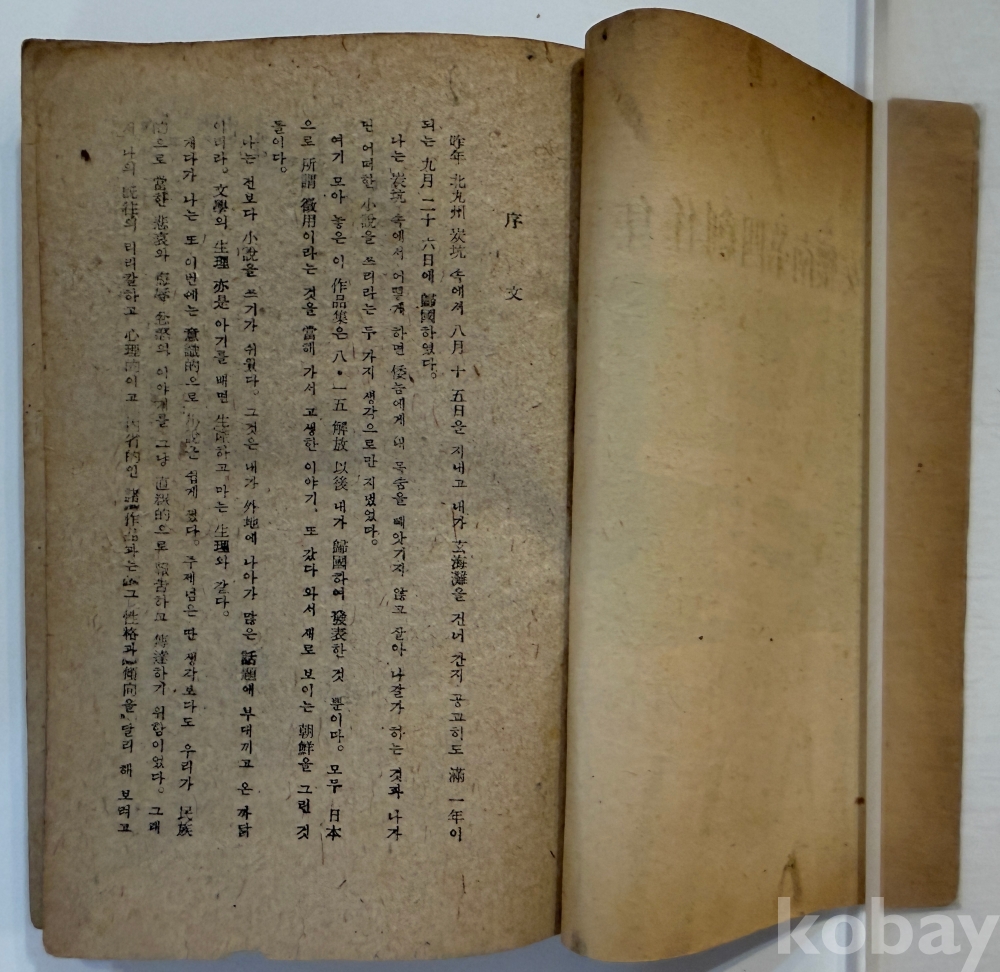 序文
昨年 北九州 炭坑 속에서 八月 十五日을 지내고 내가 玄海灘을 건너 간지 공교히도 滿 一年이
되는 九月 二十六日에 歸國하였다。
나는 炭坑 속에서 어떻게 하면 倭놈에게 내 목숨을 빼앗기지 않고 살아 나갈가 하는 것과 나가
면 어떠한 小說을 쓰리라는 두 가지 생각으로만 지냈었다。
여기 모아 놓은 이 作品集은 八・一五 解放 以後 내가 歸國하여 發表한 것 뿐이다。 모두 日本
으로 所謂 徵用이라는 것을 當해 가서 고생한 이야기、또 갔다 와서 새로 보이는 朝鮮을 그린 것
들이다。
나는 전보다 小說을 쓰기가 쉬웠다。 그것은 내가 外地에 나아가 많은 話題에 부대끼고 온 까닭
이리라。 文學의 生理 亦是 아기를 배면 生産하고 마는 生理와 같다。
게다가 나는 또 이번에는 意識的으로 小說은 쉽게 썼다。 주제넘은 딴 생각보다도 우리가 民族
的으로 當한 悲哀와 忿怒의 이야기를 그냥 直線的으로 報告하고 傳達하기 위함이었다。 그래
서 나의 旣往의 타리갈하고 心理的이고 內省的인 諸作品과는 그 性格과 傾向을 달리 해 보려고
kobay